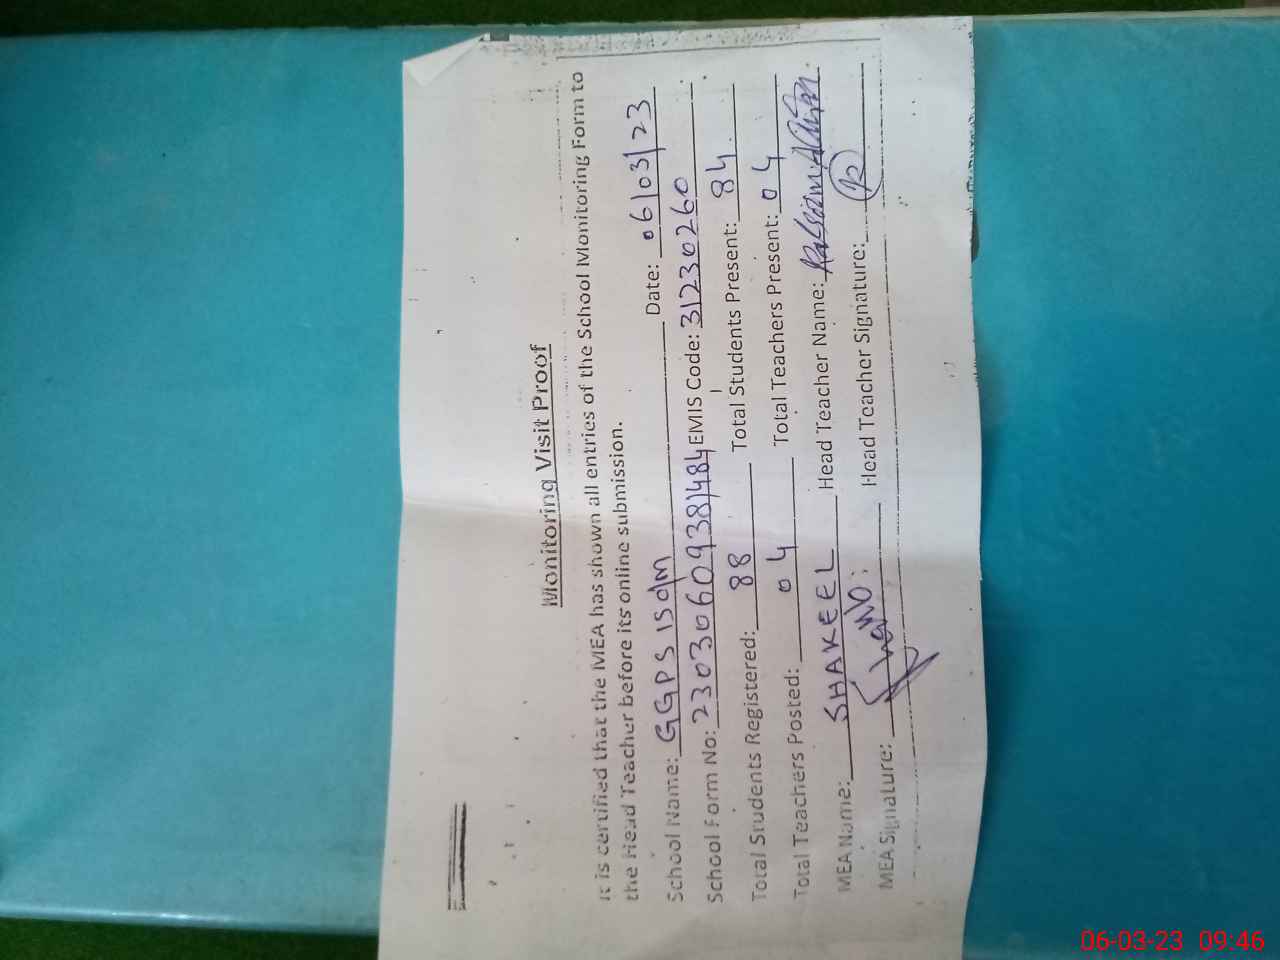 Monitoring Visit Proof
It is certified that the MEA has shown all entries of the School Monitoring Form to
the Head Teacher before its online submission.
School Name: GGPS ISdM Date: 06/03/23
School Form No: 23030609381484 EMIS Code: 31230260
Total Students Registered: 88 Total Students Present: 84
Total Teachers Posted: 04 Total Teachers Present: 04
MEA Name: SHAKEEL Head Teacher Name: Kalsoom
MEA Signature: Head Teacher Signature:
06-03-23 09:46